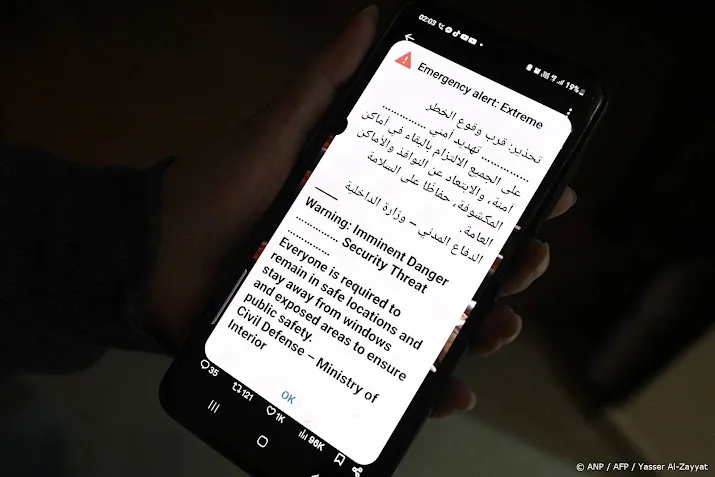 02:03
19%
Emergency alert: Extreme
تحذير: قرب وقوع الخطر
.............. تهديد أمني ..............
على الجميع الالتزام بالبقاء في أماكن
آمنة، والابتعاد عن النوافذ والأماكن
المكشوفة، حفاظًا على السلامة
العامة.
الدفاع المدني – وزارة الداخلية
Warning: Imminent Danger
.............. Security Threat
..............
Everyone is required to
remain in safe locations and
stay away from windows
and exposed areas to ensure
public safety.
Civil Defense – Ministry of
Interior
OK
35 121 1K 96K
© ANP / AFP / Yasser Al-Zayyat